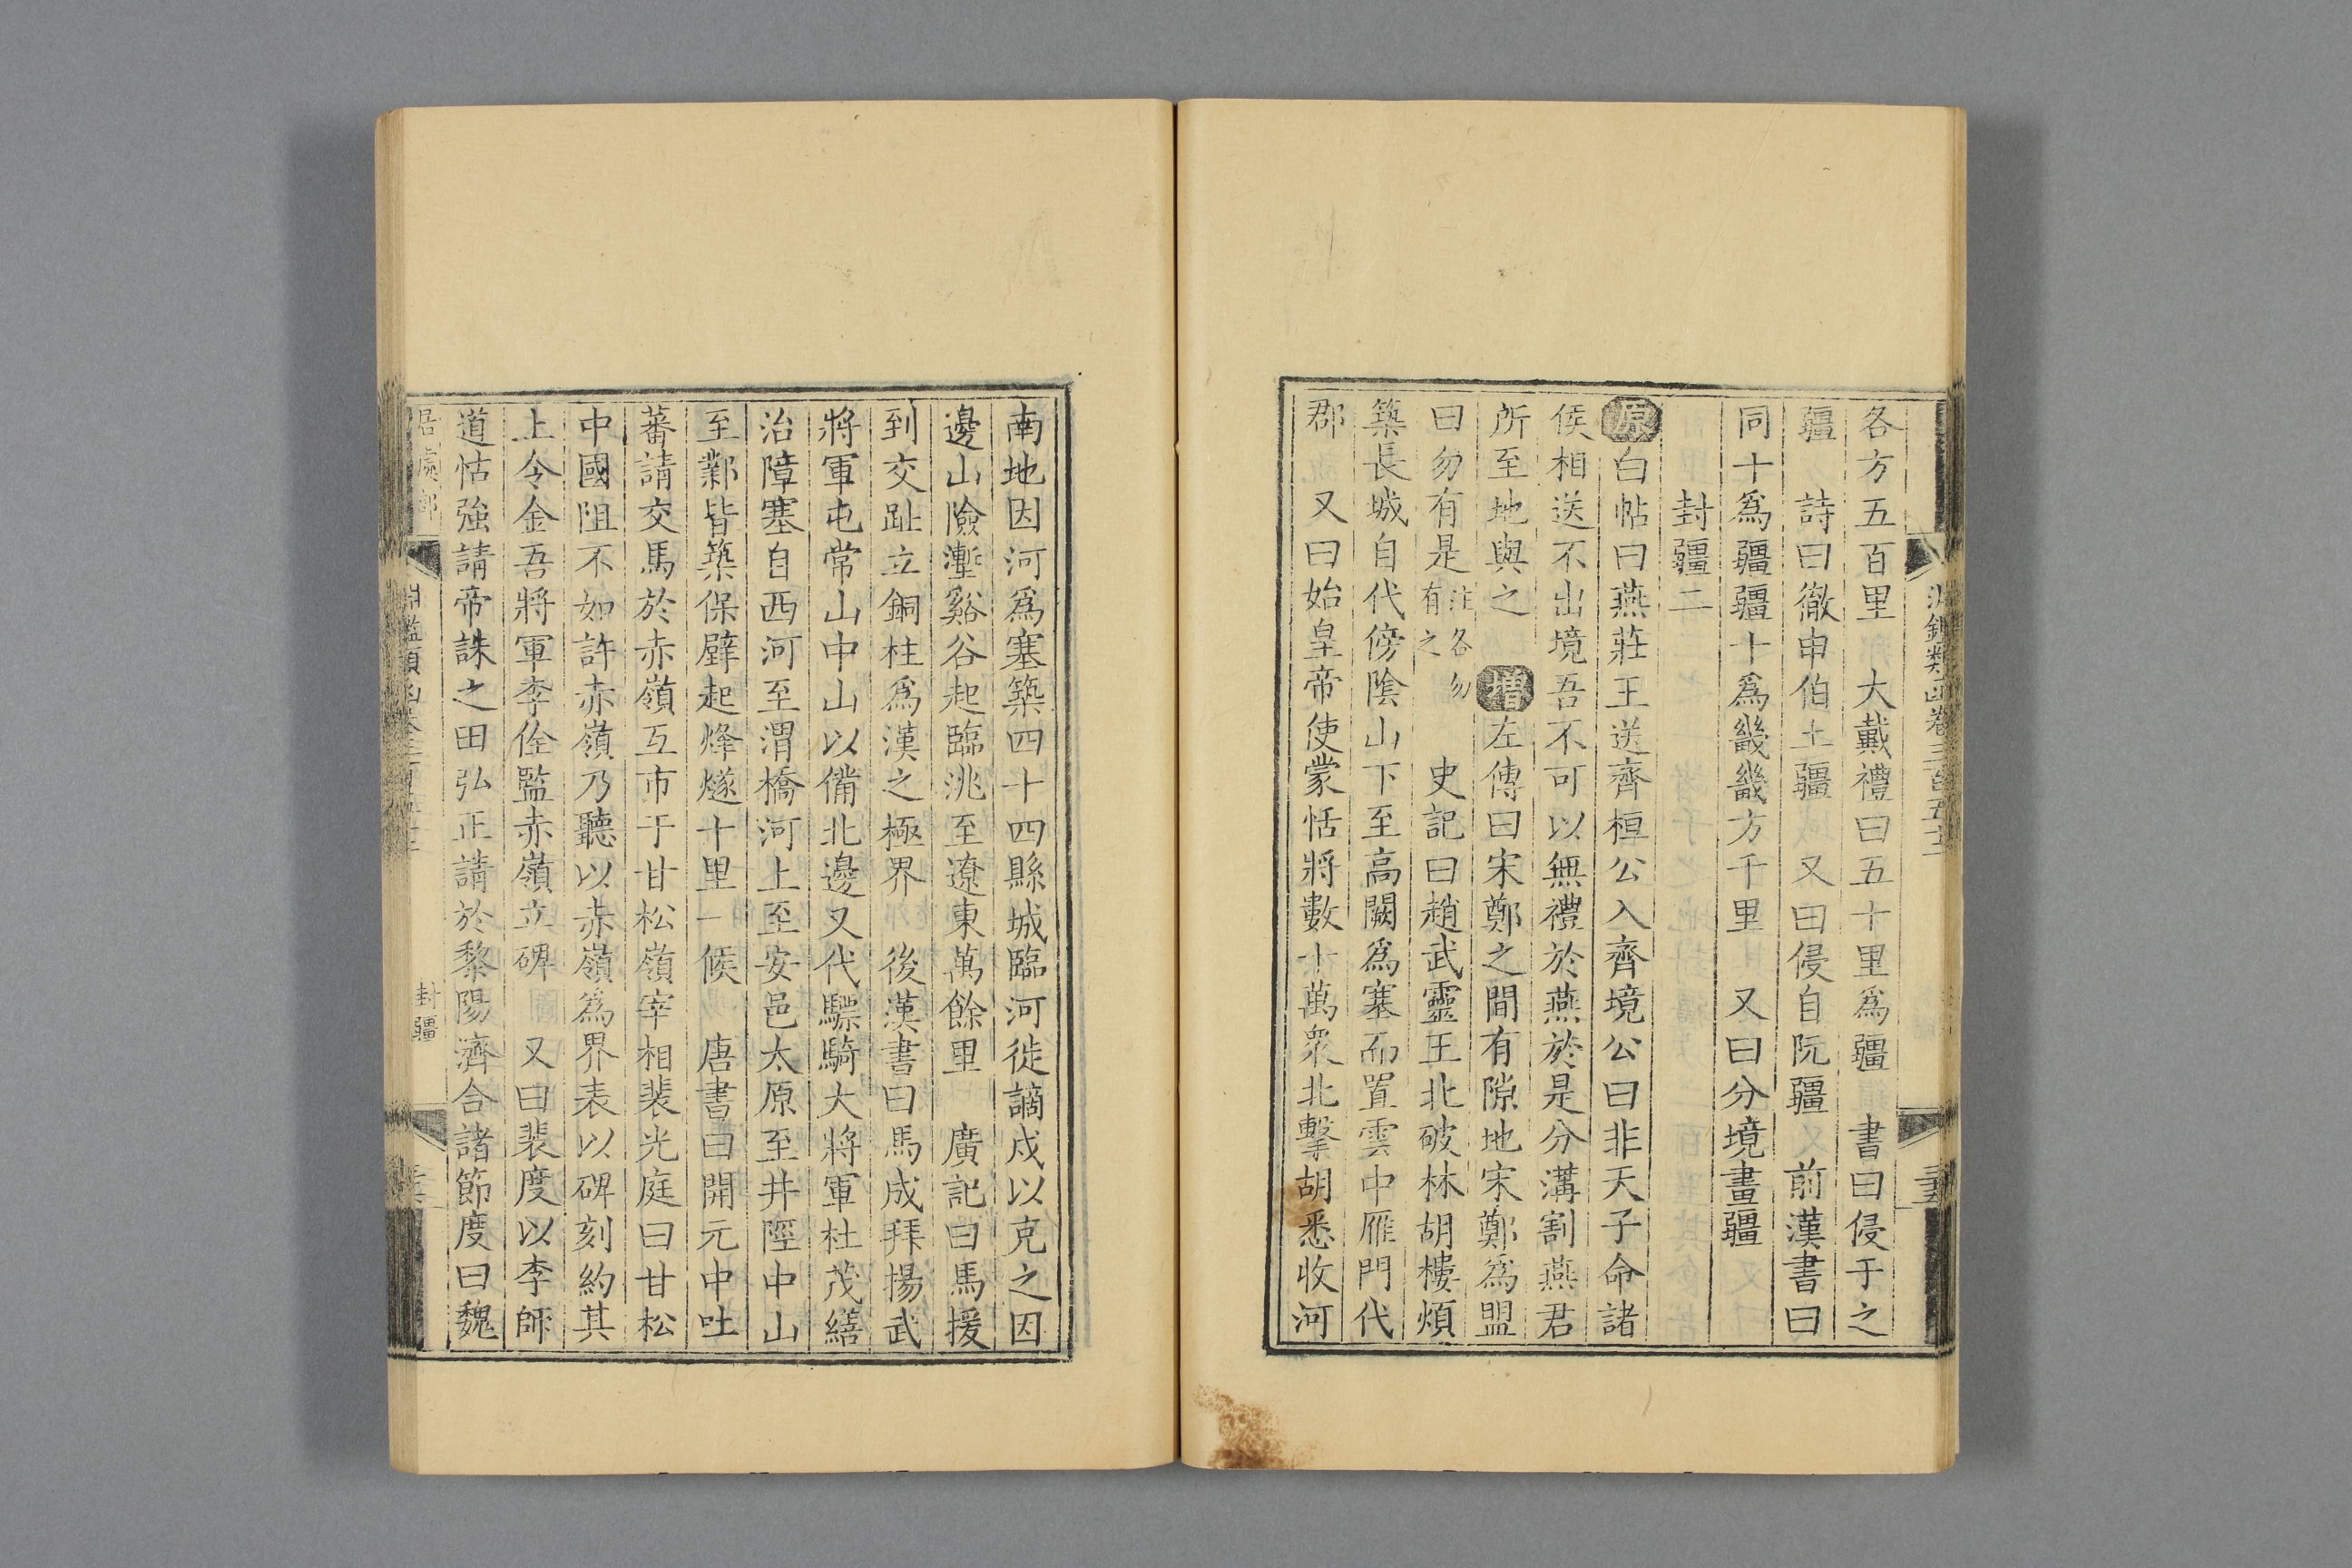 淵鑑類函卷三百五十
各方五百里　大戴禮曰五十里爲疆　書曰侵于之
疆　詩曰徹申伯土疆　又曰侵自阮疆　前漢書曰
同十爲疆疆十爲畿畿方千里　又曰分境畫疆
封疆二
原白帖曰燕莊王送齊桓公入齊境公曰非天子命諸
侯相送不出境吾不可以無禮於燕於是分溝割燕君
所至地與之　增左傳曰宋鄭之間有隙地宋鄭爲盟
曰勿有是注各勿有之　史記曰趙武靈王北破林胡樓煩
築長城自代傍陰山下至高闕爲塞而置雲中雁門代
郡　又曰始皇帝使蒙恬將數十萬衆北擊胡悉收河
南地因河爲塞築四十四縣城臨河徙謫戍以克之因
邊山險壍谿谷起臨洮至遼東萬餘里　廣記曰馬援
到交趾立銅柱爲漢之極界　後漢書曰馬成拜揚武
將軍屯常山中山以備北邊又代驃騎大將軍杜茂繕
治障塞自西河至渭橋河上至安邑太原至井陘中山
至鄴皆築保壁起烽燧十里一候　唐書曰開元中吐
蕃請交馬於赤嶺互市于甘松嶺宰相裴光庭曰甘松
中國阻不如許赤嶺乃聽以赤嶺爲界表以碑刻約其
上令金吾將軍李佺監赤嶺立碑　又曰裴度以李師
道怙強請帝誅之田弘正請於黎陽濟合諸節度曰魏
居處部
封疆